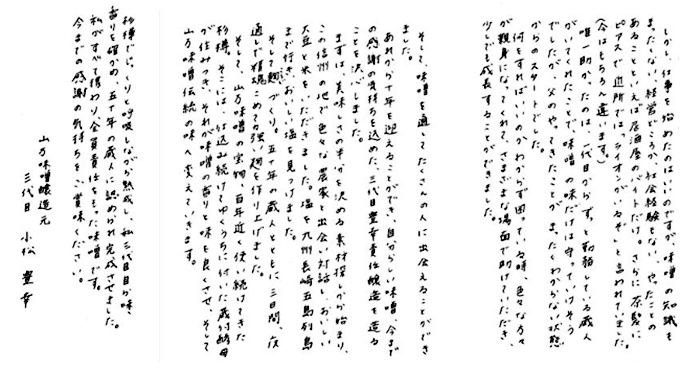 しかし、仕事を始めたのはいいのですが、味噌の知識も
まったくない、経営どころか、社会経験もない。やったことの
あることといえば居酒屋のバイトだけ。さらに茶髪に
ピアスで近所では、「ライオンがいるぞ」と言われていました。
(今はもちろん違います)
唯一助かったのは、一代目からずっと勤務している蔵人
がいてくれたことで、味噌の味だけは守っていけそう
でしたが、父のやってきたことが、まったくわからない状態
からのスタートでした。
何をすればいいのかわからず困っている時、色々な方々
が親身になってくれて、さまざまな場面で助けていただき、
少しでも成長することができました。
そして、味噌を通してたくさんの人に出会えることができ
ました。
あれから十年を迎えることができ、自分らしい味噌、今まで
の感謝の気持ちを込めた、三代目豊幸責任醸造を造る
ことを決心しました。
まずは、美味しさの半分を決める素材探しから始まり、
この信州の地で色々な農家と出会い対話し、おいしい
大豆と米をいただきました。塩を九州長崎五島列島
まで行き、おいしい塩を見つけました。
そして麹づくり。五十年の蔵人とともに三日間、夜
通しで精魂こめて力強い麹を作り上げました。
そして、山万味噌の宝物、百年近く使い続けてきた
杉樽。そこには、仕込み続けてゆくうちに付いた蔵付酵母
が住みつき、それが味噌の香りと味を良くさせ、そして
山万味噌伝統の味へ変えていきます。
杉樽でじっくりと呼吸しながら熟成し、私三代目自ら味、
香りを確かめ、五十年の蔵人に認められ完成させました。
私がすべて携わり全員責任をもった味噌です。
今までの感謝の気持ちをご賞味ください。
山万味噌醸造元
三代目 小松 豊幸